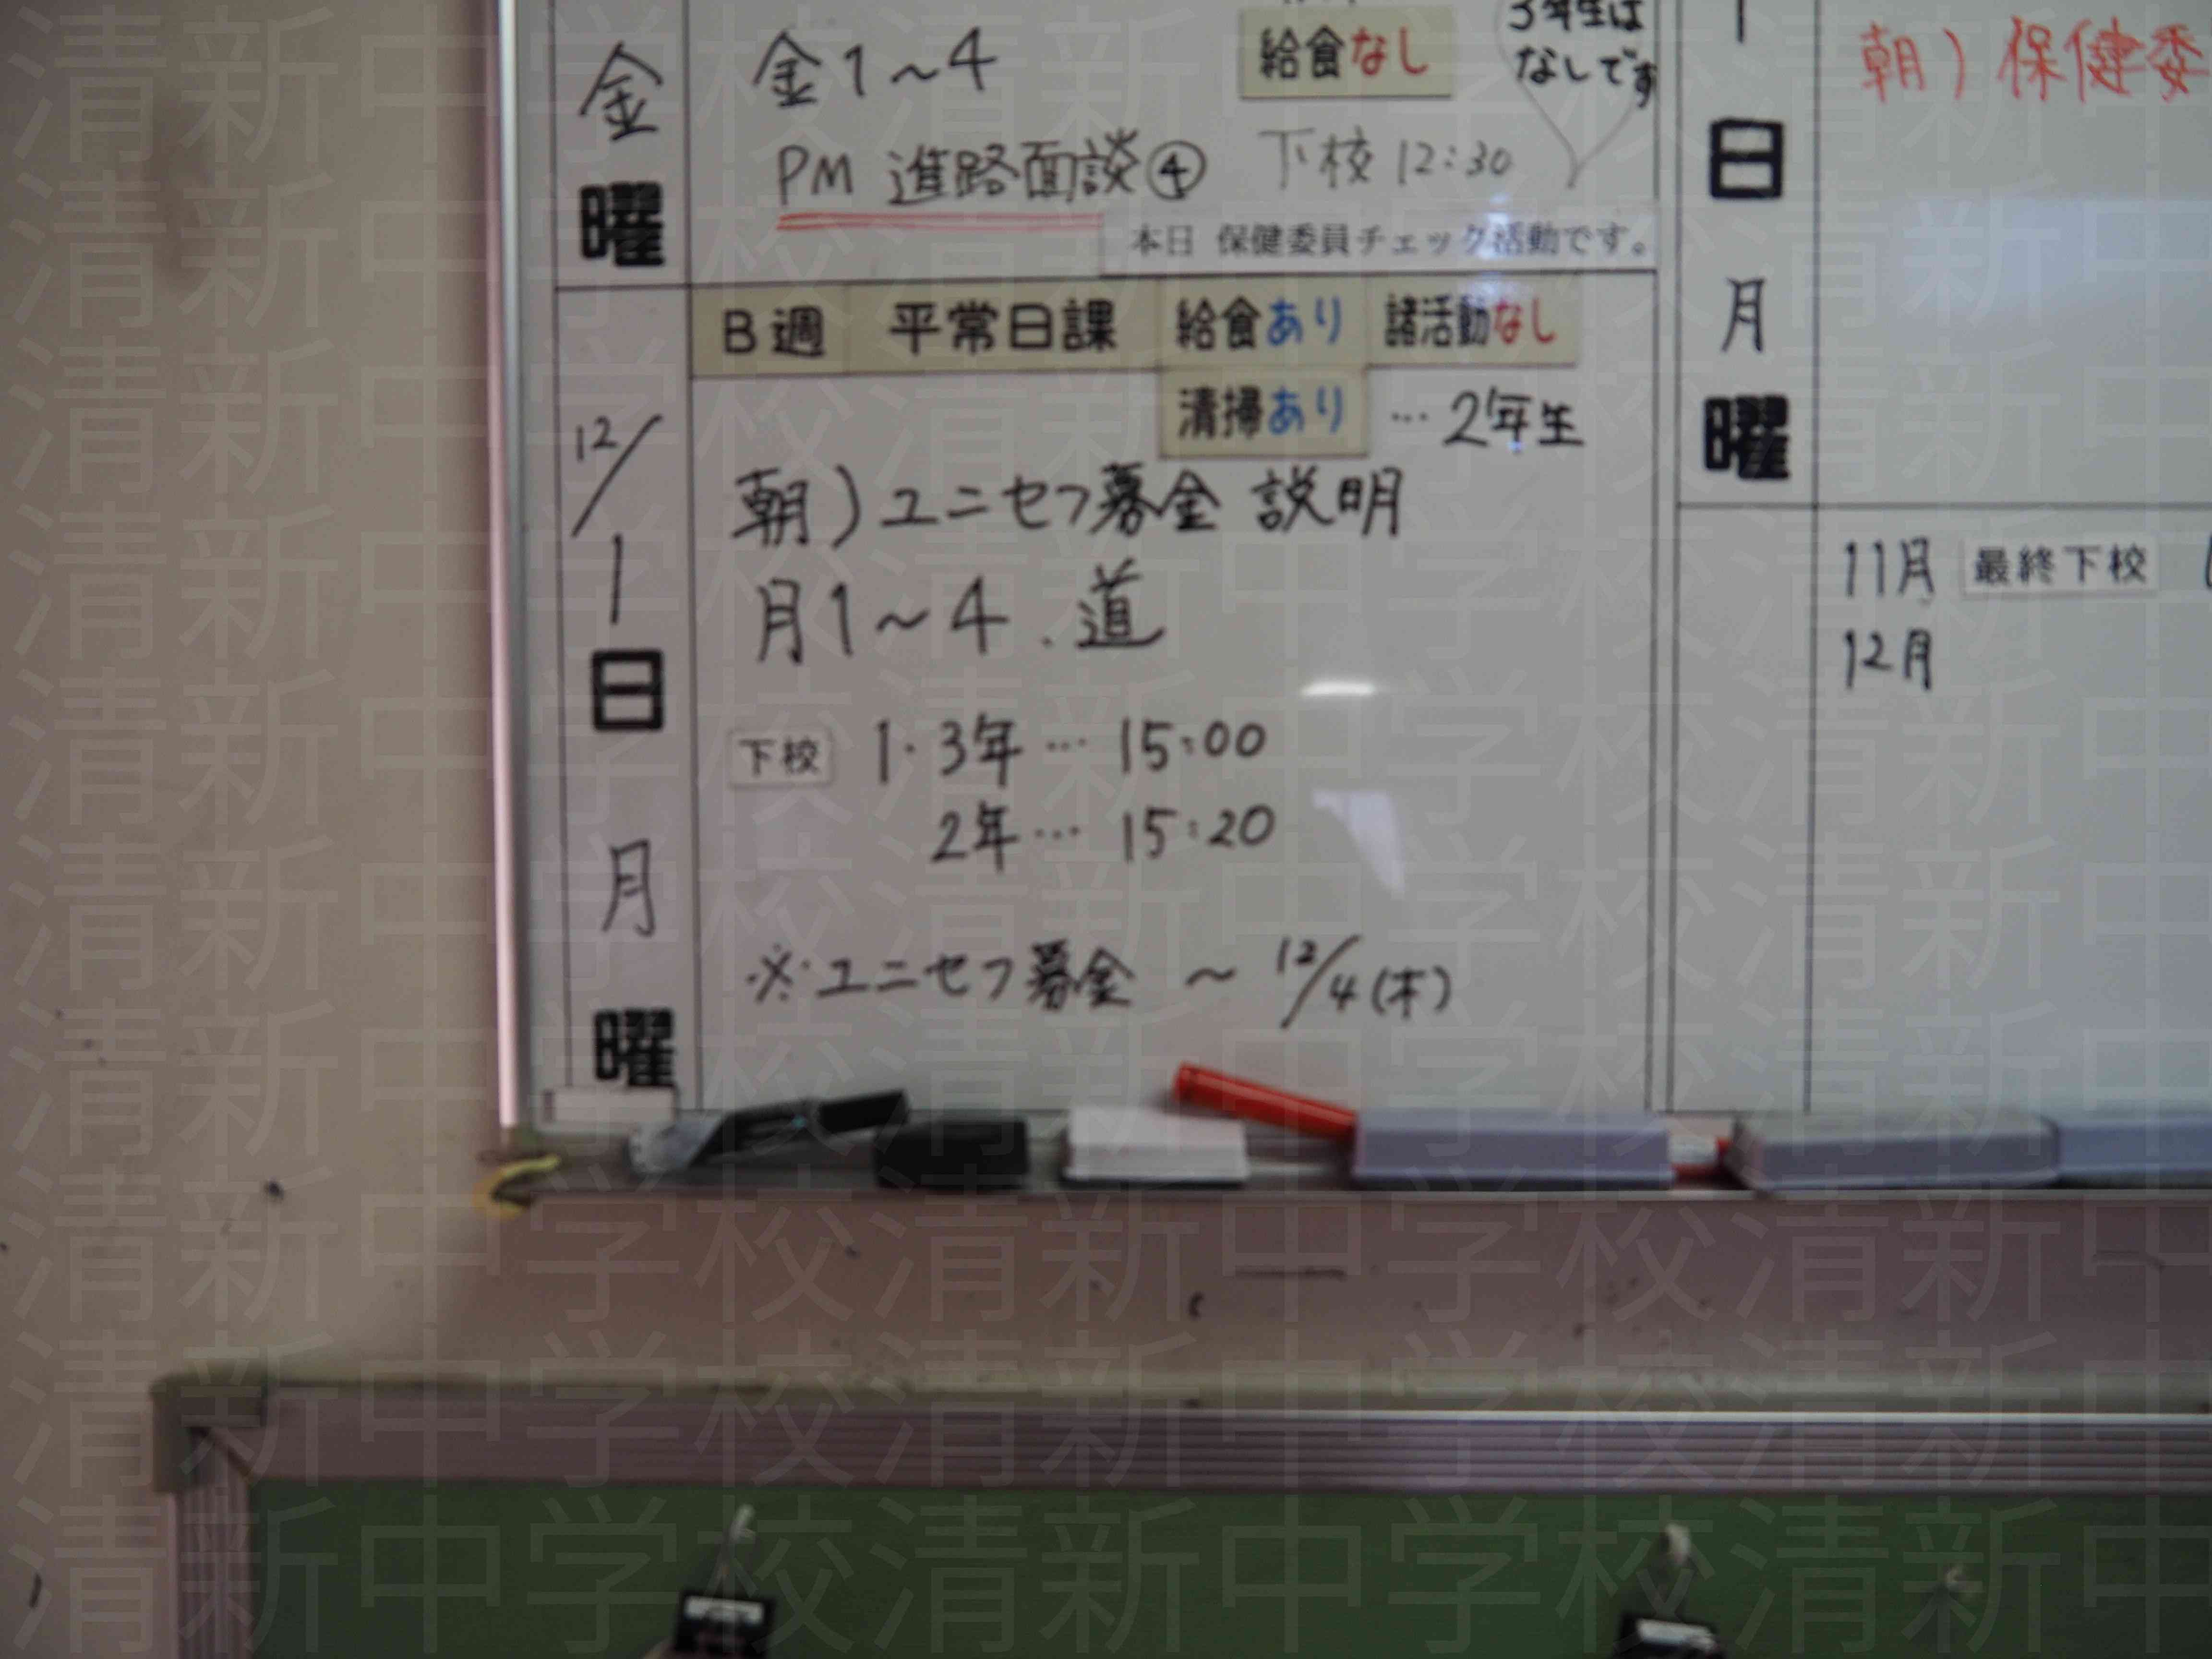 3年生は
なしです
金曜
金1~4
給食なし
PM 進路面談④
下校 12:30
本日 保健委員チェック活動です。
12/1日月曜
B週 平常日課 給食あり 諸活動なし
清掃あり …2年生
朝)ユニセフ募金 説明
月1~4.道
下校 1・3年…15:00
2年…15:20
※ユニセフ募金 ~12/4(木)
1日月曜
朝)保健委
11月 最終下校
12月
清新中学校